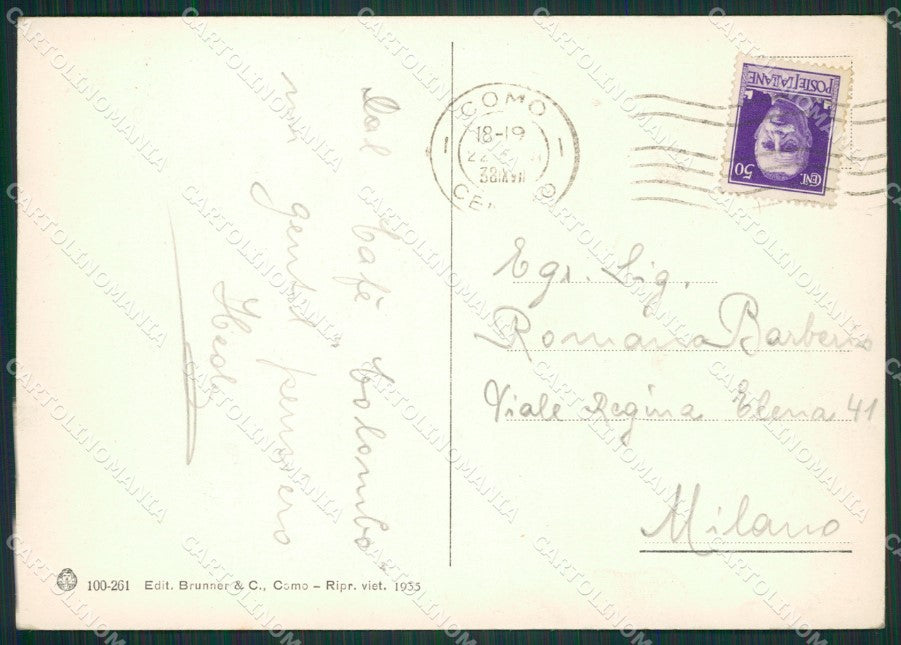 Dal Cafè Colombo
un gentil pensiero
COMO
18-19
22
38 XVI
POSTE ITALIANE
CENT. 50
Egr. Sig.
Romana Barberis
Viale Regina Elena 41
Milano
100-261 Edit. Brunner & C., Como – Ripr. viet. 1935
CARTOLINOMANIA